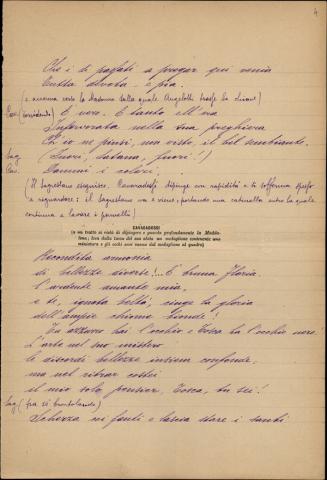 4
Che i dì passati a pregar qui venia
Tutta devota e pia.
(e accenna verso la Madonna dalla quale Angelotti trasse la chiave)
Cav. (sorridendo) È vero. E tanto ell'era
Infervorata nella sua preghiera
Ch'io ne pinsi, non visto, il bel sembiante.
Sag. (Fuori, Satana, fuori!)
Cav. Dammi i colori,
(Il Sagrestano eseguisce. Cavaradossi dipinge con rapidità e si sofferma spesso
a riguardare: il Sagrestano va e viene, portando una catinella entro la quale
continua a lavare i pennelli)
CAVARADOSSI
(a un tratto si ristà di dipingere e guarda profondamente la Madda-
lena; leva dalla tasca del suo abito un medaglione contenente una
miniatura e gli occhi suoi vanno dal medaglione al quadro)
Recondita armonia
di bellezze diverse!... È bruna Floria,
l'ardente amante mia,
e te, ignota beltà, cinge la gloria
dell'ampie chiome bionde!
Tu azzurro hai l'occhio e Tosca ha l'occhio nero.
L'arte nel suo mistero
le discordi bellezze insiem confonde,
ma nel ritrar costei
il mio solo pensier, Tosca, tu sei!
Sag. (fra sè brontolando)
Scherza coi fanti e lascia stare i santi